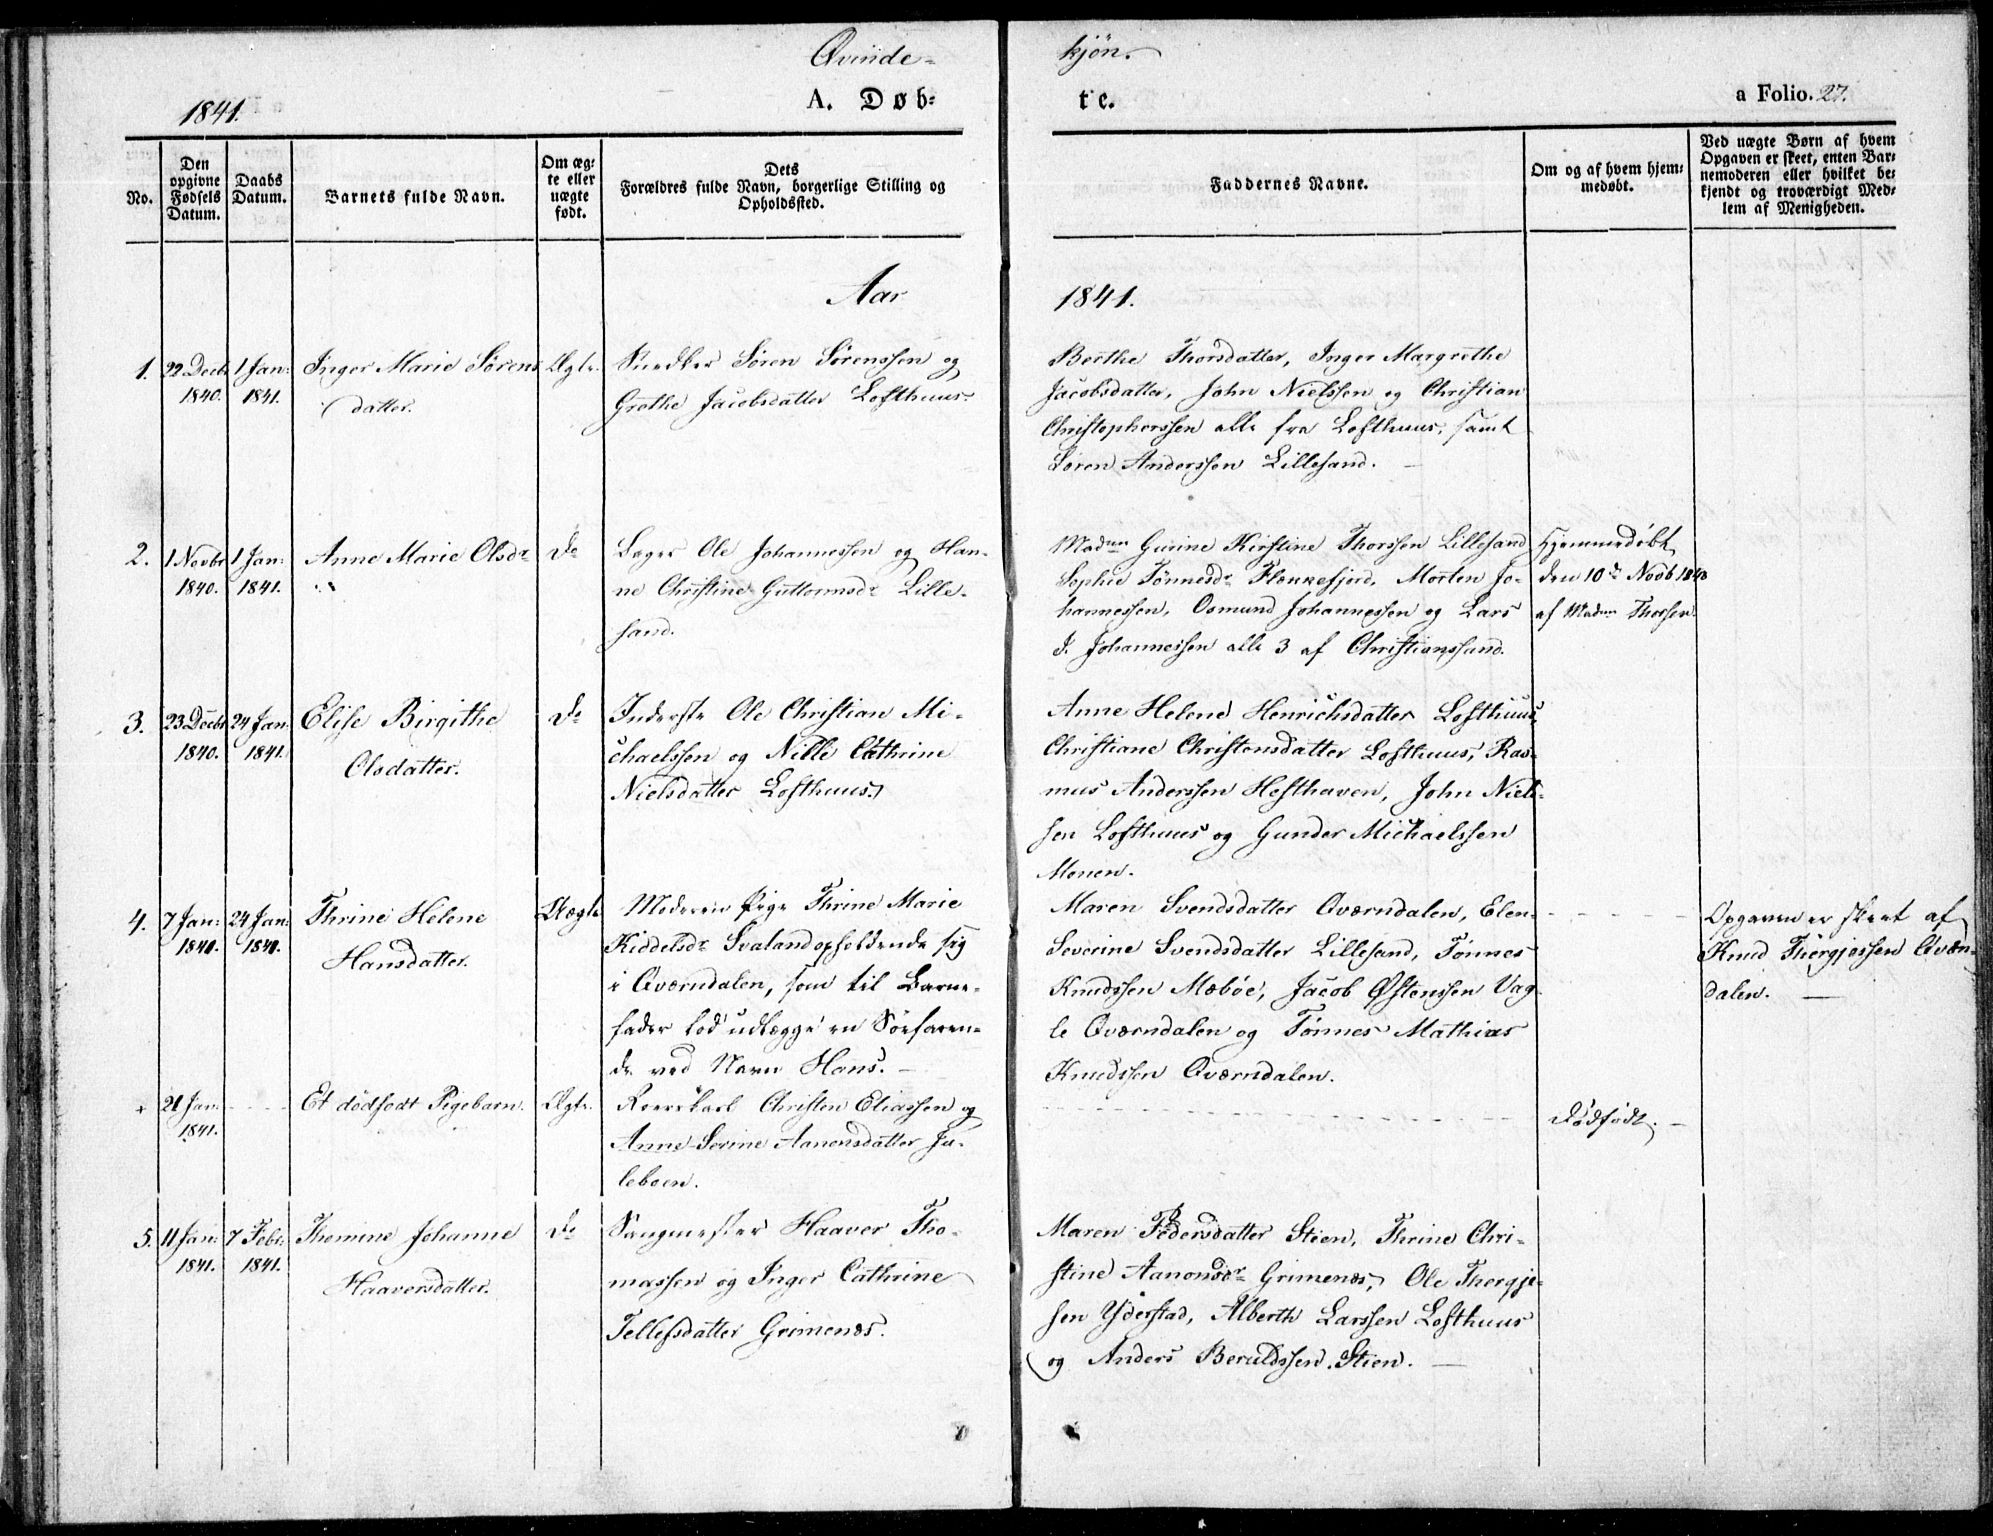 Qvinde-
kjøn.
1841.
A. Døb-
te.
a Folio. 27.
No.
Den opgivne Fødsels Datum.
Daabs Datum.
Barnets fulde Navn.
Om ægte eller uægte født.
Dets
Forældres fulde Navn, borgerlige Stilling og
Opholdssted.
Faddernes Navne.
Om og af hvem hjem-
medøbt.
Ved uægte Børn af hvem
Opgaven er skeet, enten Bar-
nemoderen eller hvilket be-
kjendt og troværdigt Med-
lem af Menigheden.
Aar
1841.
1. 22 Decbr 1840. 1 Jan: 1841. Inger Marie Sørens
datter.
Ægte.
Snedker Søren Sørenssen og
Grethe Jacobsdatter Lofthuus.
Berthe Thorsdatter, Inger Margrethe
Jacobsdatter, John Nielssen og Christian
Christopherssen alle fra Lofthuus, samt
Søren Anderssen Lillesand.
2. 1 Novbr 1840. 1 Jan: 1841. Anne Marie Olsdr
Do
Ole Johannessen og Han-
ne Christine Guttormsdr Lille-
sand.
Madm Gurine Kirstine Thorssen Lillesand
Sophie Tønnesdr Morten Jo-
hannessen, Osmund Johannessen og Lars
J. Johannessen alle 3 af Christianssand.
Hjemmedøbt
den 10de Novb 1840
af Madm Thorssen.
3. 23 Decbr 1840. 24 Jan: 1841. Elise Birgithe
Olsdatter.
Do
Inderste Ole Christian Mi-
chaelssen og Nille Cathrine
Nielsdatter Lofthuus.
Anne Helene Henrichsdatter Lofthuus,
Christiane Christensdatter Lofthuus, Ras-
mus Anderssen Hesthaven, John Niels-
sen Lofthuus og Gunder Michaelssen
Monen.
4. 7 Jan: 1841. 24 Jan: 1841. Thrine Helene
Hansdatter.
Uægte
Moderen Pige Thrine Marie
Kiddelsdr Svaland opholdende sig
i Qværndalen, som til Barne-
fader lod udlægge en Søefaren-
de ved Navn Hans.
Maren Svendsdatter Qværndalen, Elen
Severine Svendsdatter Lillesand, Tønnes
Knudssen Mæbøe, Jacob Østenssen Vag-
le Qværndalen og Tønnes Mathias
Knudssen Qværndalen.
Opgaven er skeet af
Knud Thergjessen Qværn-
dalen.
+ 21 Jan: 1841. Et dødfødt Pigebarn. Ægte.
Christen Eliassen og
Anne Serine Aanonsdatter Ju-
leboen.
Dødfødt.
5. 11 Jan: 1841. 7 Febr: 1841. Thomine Johanne
Haaversdatter.
Do
Haaver Tho-
massen og Inger Cathrine
Tellefsdatter Grimenæs.
Maren Pedersdatter Stien, Thrine Chri-
stine Aanonsdr Grimenæs, Ole Thergje-
sen Yderstad, Alberth Larssen Lofthuus
og Anders Beruldssen Stien.